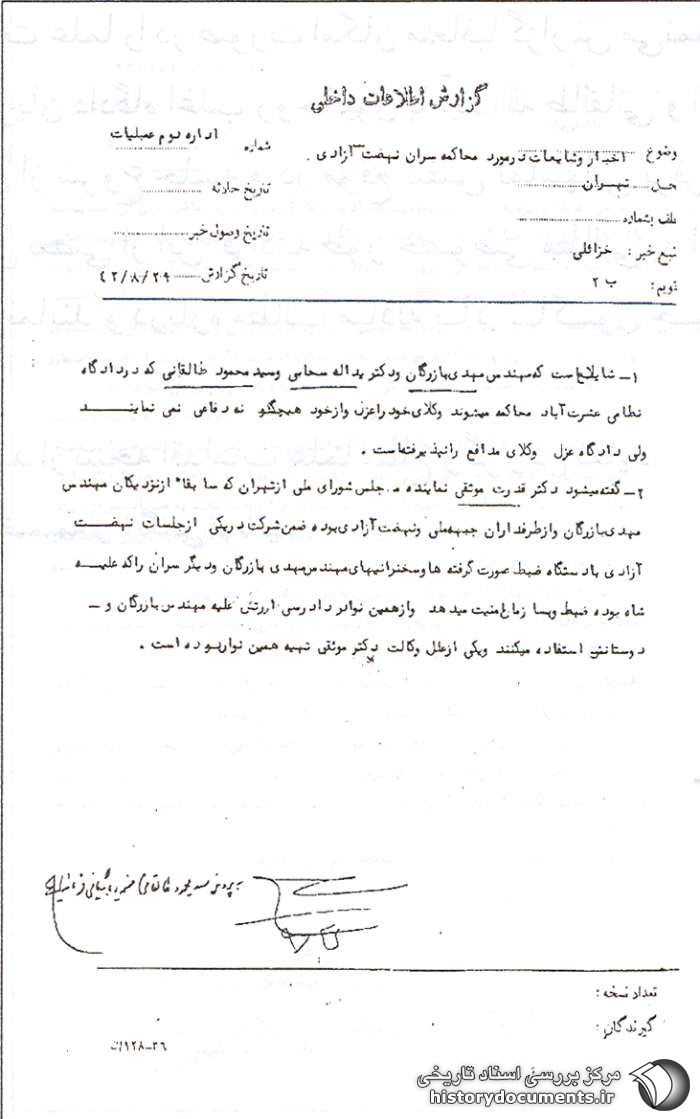 گزارش اطلاعات داخلی
اداره دوم عملیات
شماره
وضوع اخبار و شایعات در مورد محاکمه سران نهضت آزادی .
حل تهران
تاریخ حادثه
تلف بشماره
تاریخ وصول خبر
نبع خبر : خزائلی
تاریخ گزارش ۴۲/۸/۲۹
نویم : ب ۲
۱ـ شایع است که مهندس مهدی بازرگان ودکتر یداله سحابی وسید محمود طالقانی که در دادگاه
نظامی عشرت آباد محاکمه میشوند وکلای خود را عزل و از خود هیچگونه دفاعی نمی نمایند
ولی دادگاه عزل وکلای مدافع را نپذیرفته است .
۲ـ گفته میشود دکتر قدرت موثقی نماینده مجلس شورای ملی از تهران که سابقاً از نزدیکان مهندس
مهدی بازرگان و از طرفداران جبهه ملی و نهضت آزادی بوده ضمن شرکت در یکی از جلسات نهضت
آزادی با دستگاه ضبط صورت گرفته ها و سخنرانیهای مهندس مهدی بازرگان و دیگر سران را که علیه
شاه بوده ضبط و بسازمان امنیت میدهد و از همین نوار دادرسی ارتش علیه مهندس بازرگان و ـ
دوستانش استفاده میکنند و یکی از علل وکالت دکتر موثقی تهیه همین نوار بوده است .
به پرونده سید محمود طالقانی
تعداد نسخه :
گیرندگان :
۳۶ـ۱۲۸
مرکز بررسی اسناد تاریخی
historydocuments.ir